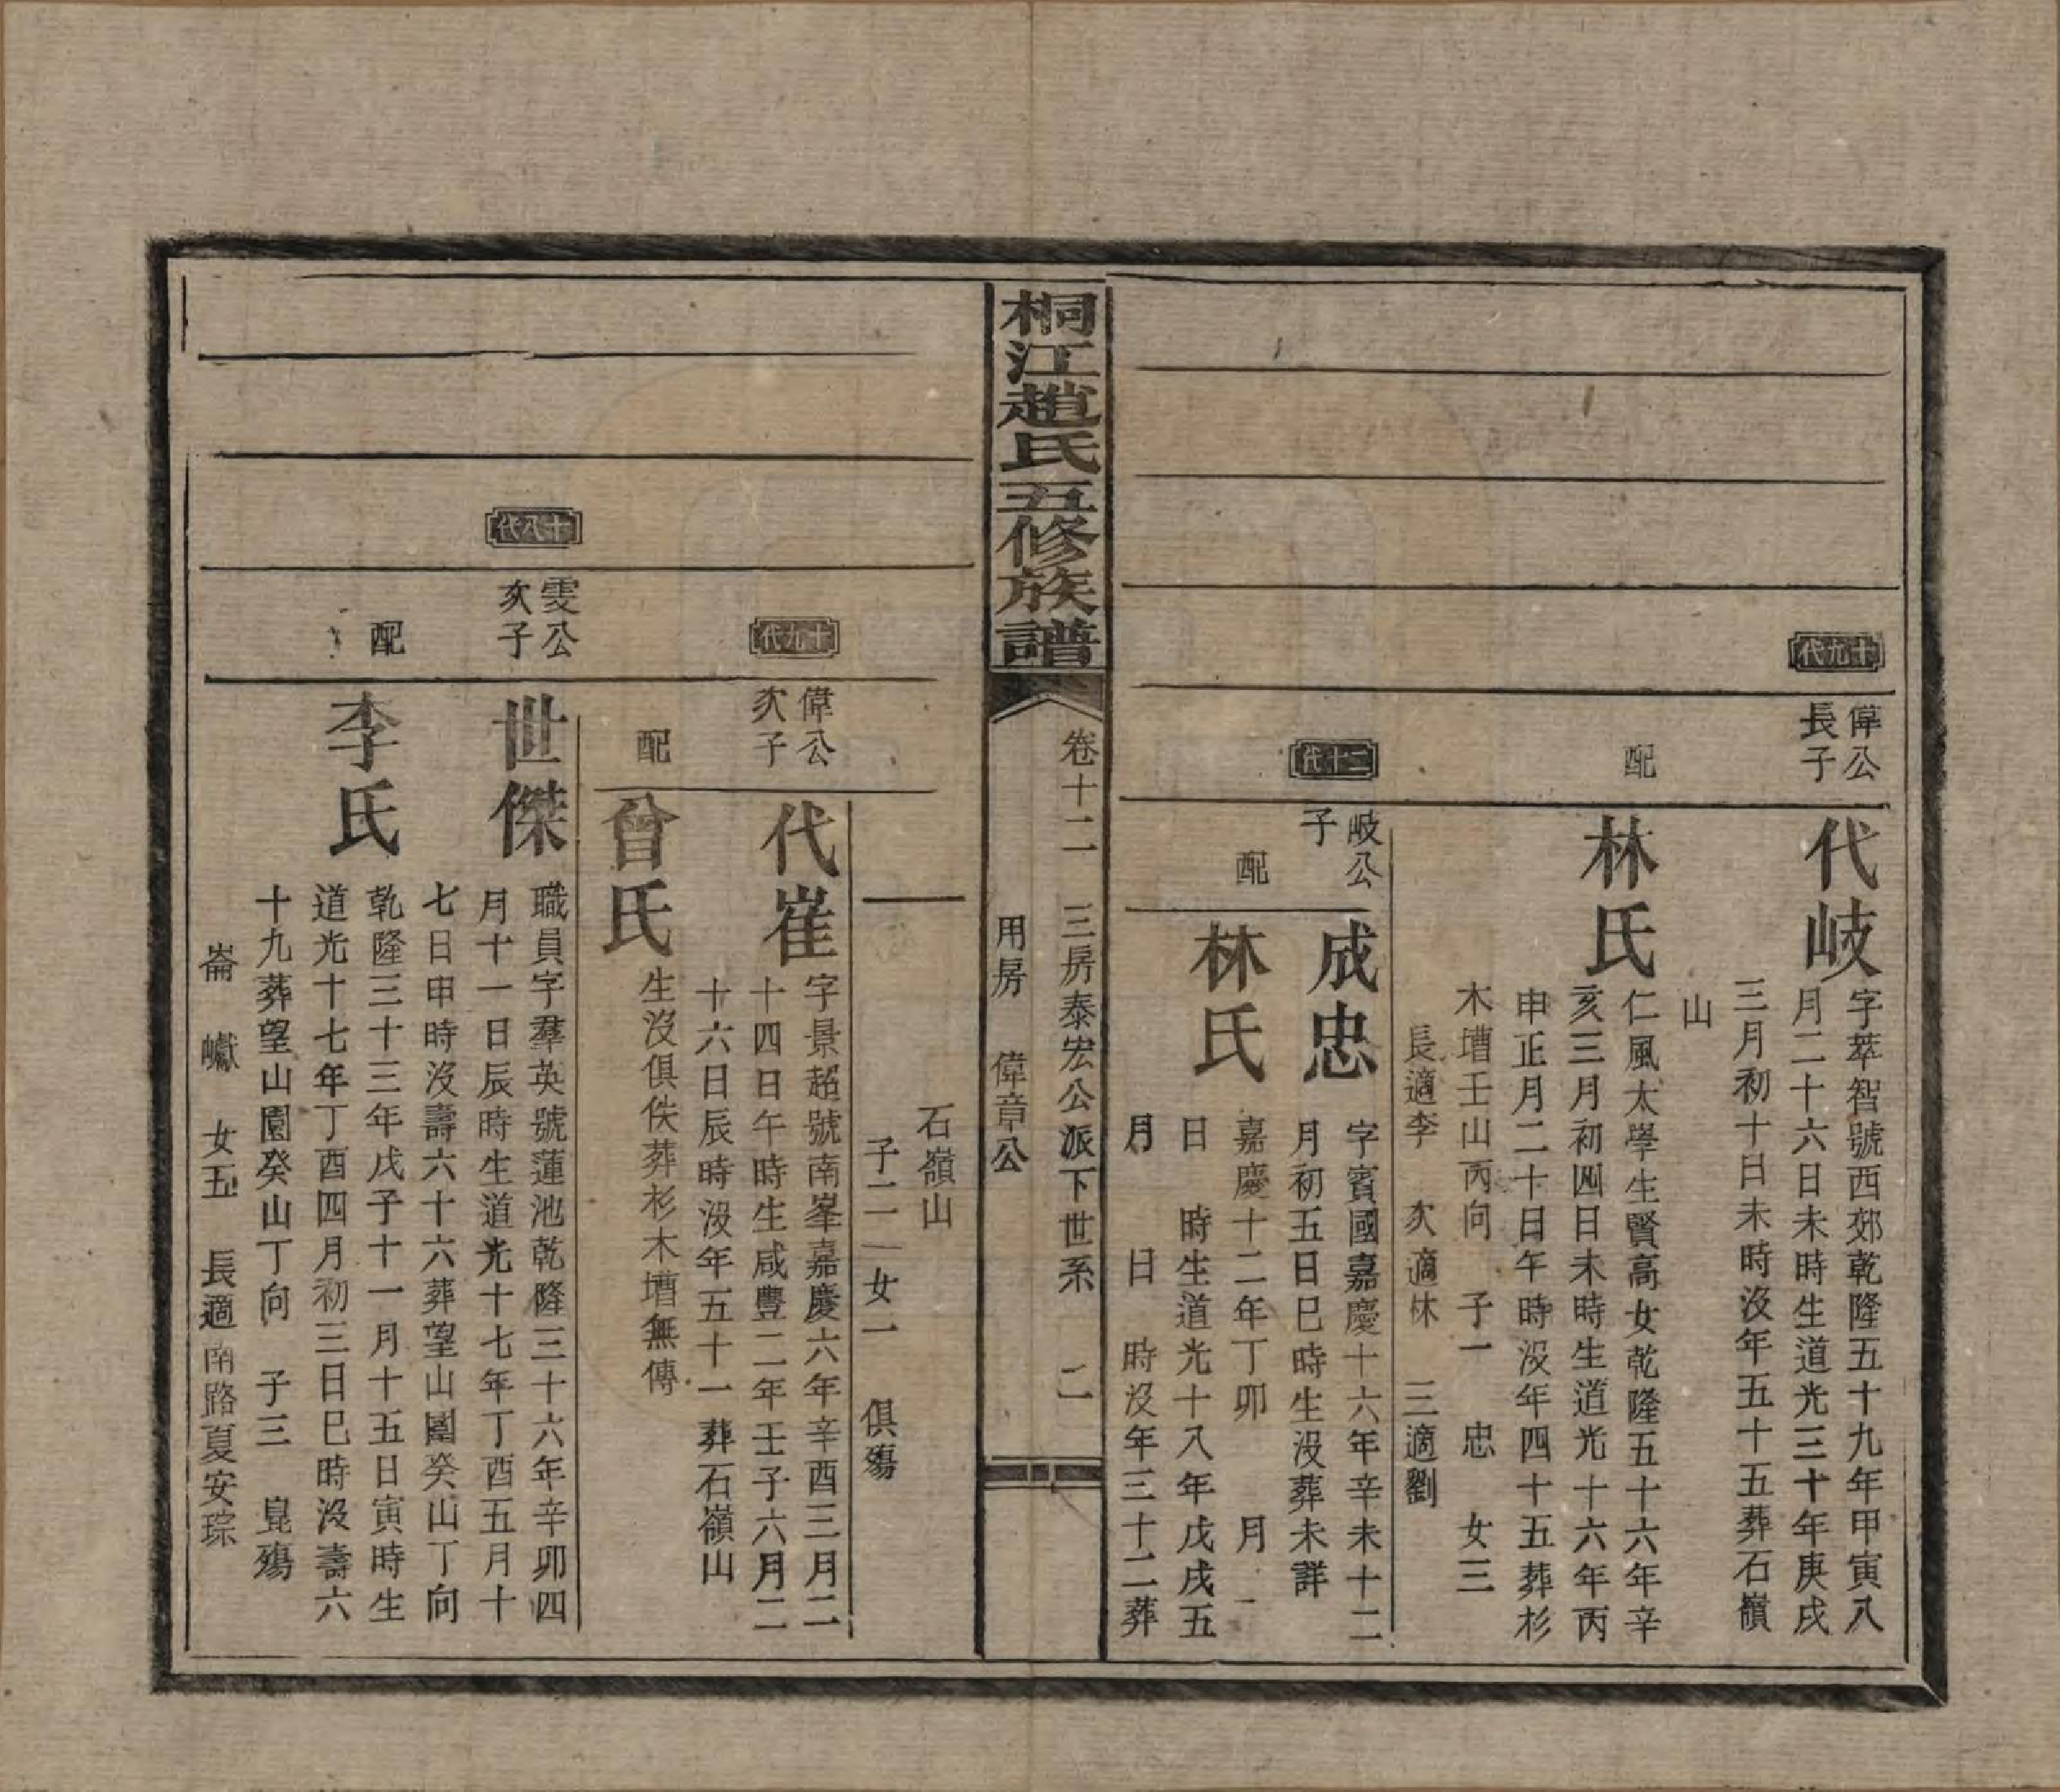 十九代
偉公
長子
代岐
字萃智號西郊乾隆五十九年甲寅八
月二十六日未時生道光三十年庚戌
三月初十日未時沒年五十五葬石嶺
山
配
林氏
仁風太學生賢高女乾隆五十六年辛
亥三月初四日未時生道光十六年丙
申正月二十日午時沒年四十五葬杉
木壋壬山丙向 子一 忠 女三
長適李 次適林 三適劉
二十代
岐公
子
成忠
字賓國嘉慶十六年辛未十二
月初五日巳時生沒葬未詳
配
林氏
嘉慶十二年丁卯 月
日 時生道光十八年戊戌五
月 日 時沒年三十二葬
桐江趙氏五修族譜
卷十二 三房泰宏公派下世系 二
用房 偉章公
石嶺山
子二 女一 俱殤
十九代
偉公
次子
代崔
字景超號南峯嘉慶六年辛酉三月二
十四日午時生咸豐二年壬子六月二
十六日辰時沒年五十一葬石嶺山
配
曾氏
生沒俱佚葬杉木壋無傳
十八代
雯公
次子
世傑
職員字羣英號蓮池乾隆三十六年辛卯四
月十一日辰時生道光十七年丁酉五月十
七日申時沒壽六十六葬望山園癸山丁向
配
李氏
乾隆三十三年戊子十一月十五日寅時生
道光十七年丁酉四月初三日巳時沒壽六
十九葬望山園癸山丁向 子三 崑殤
崙 巘 女五 長適南路夏安琮